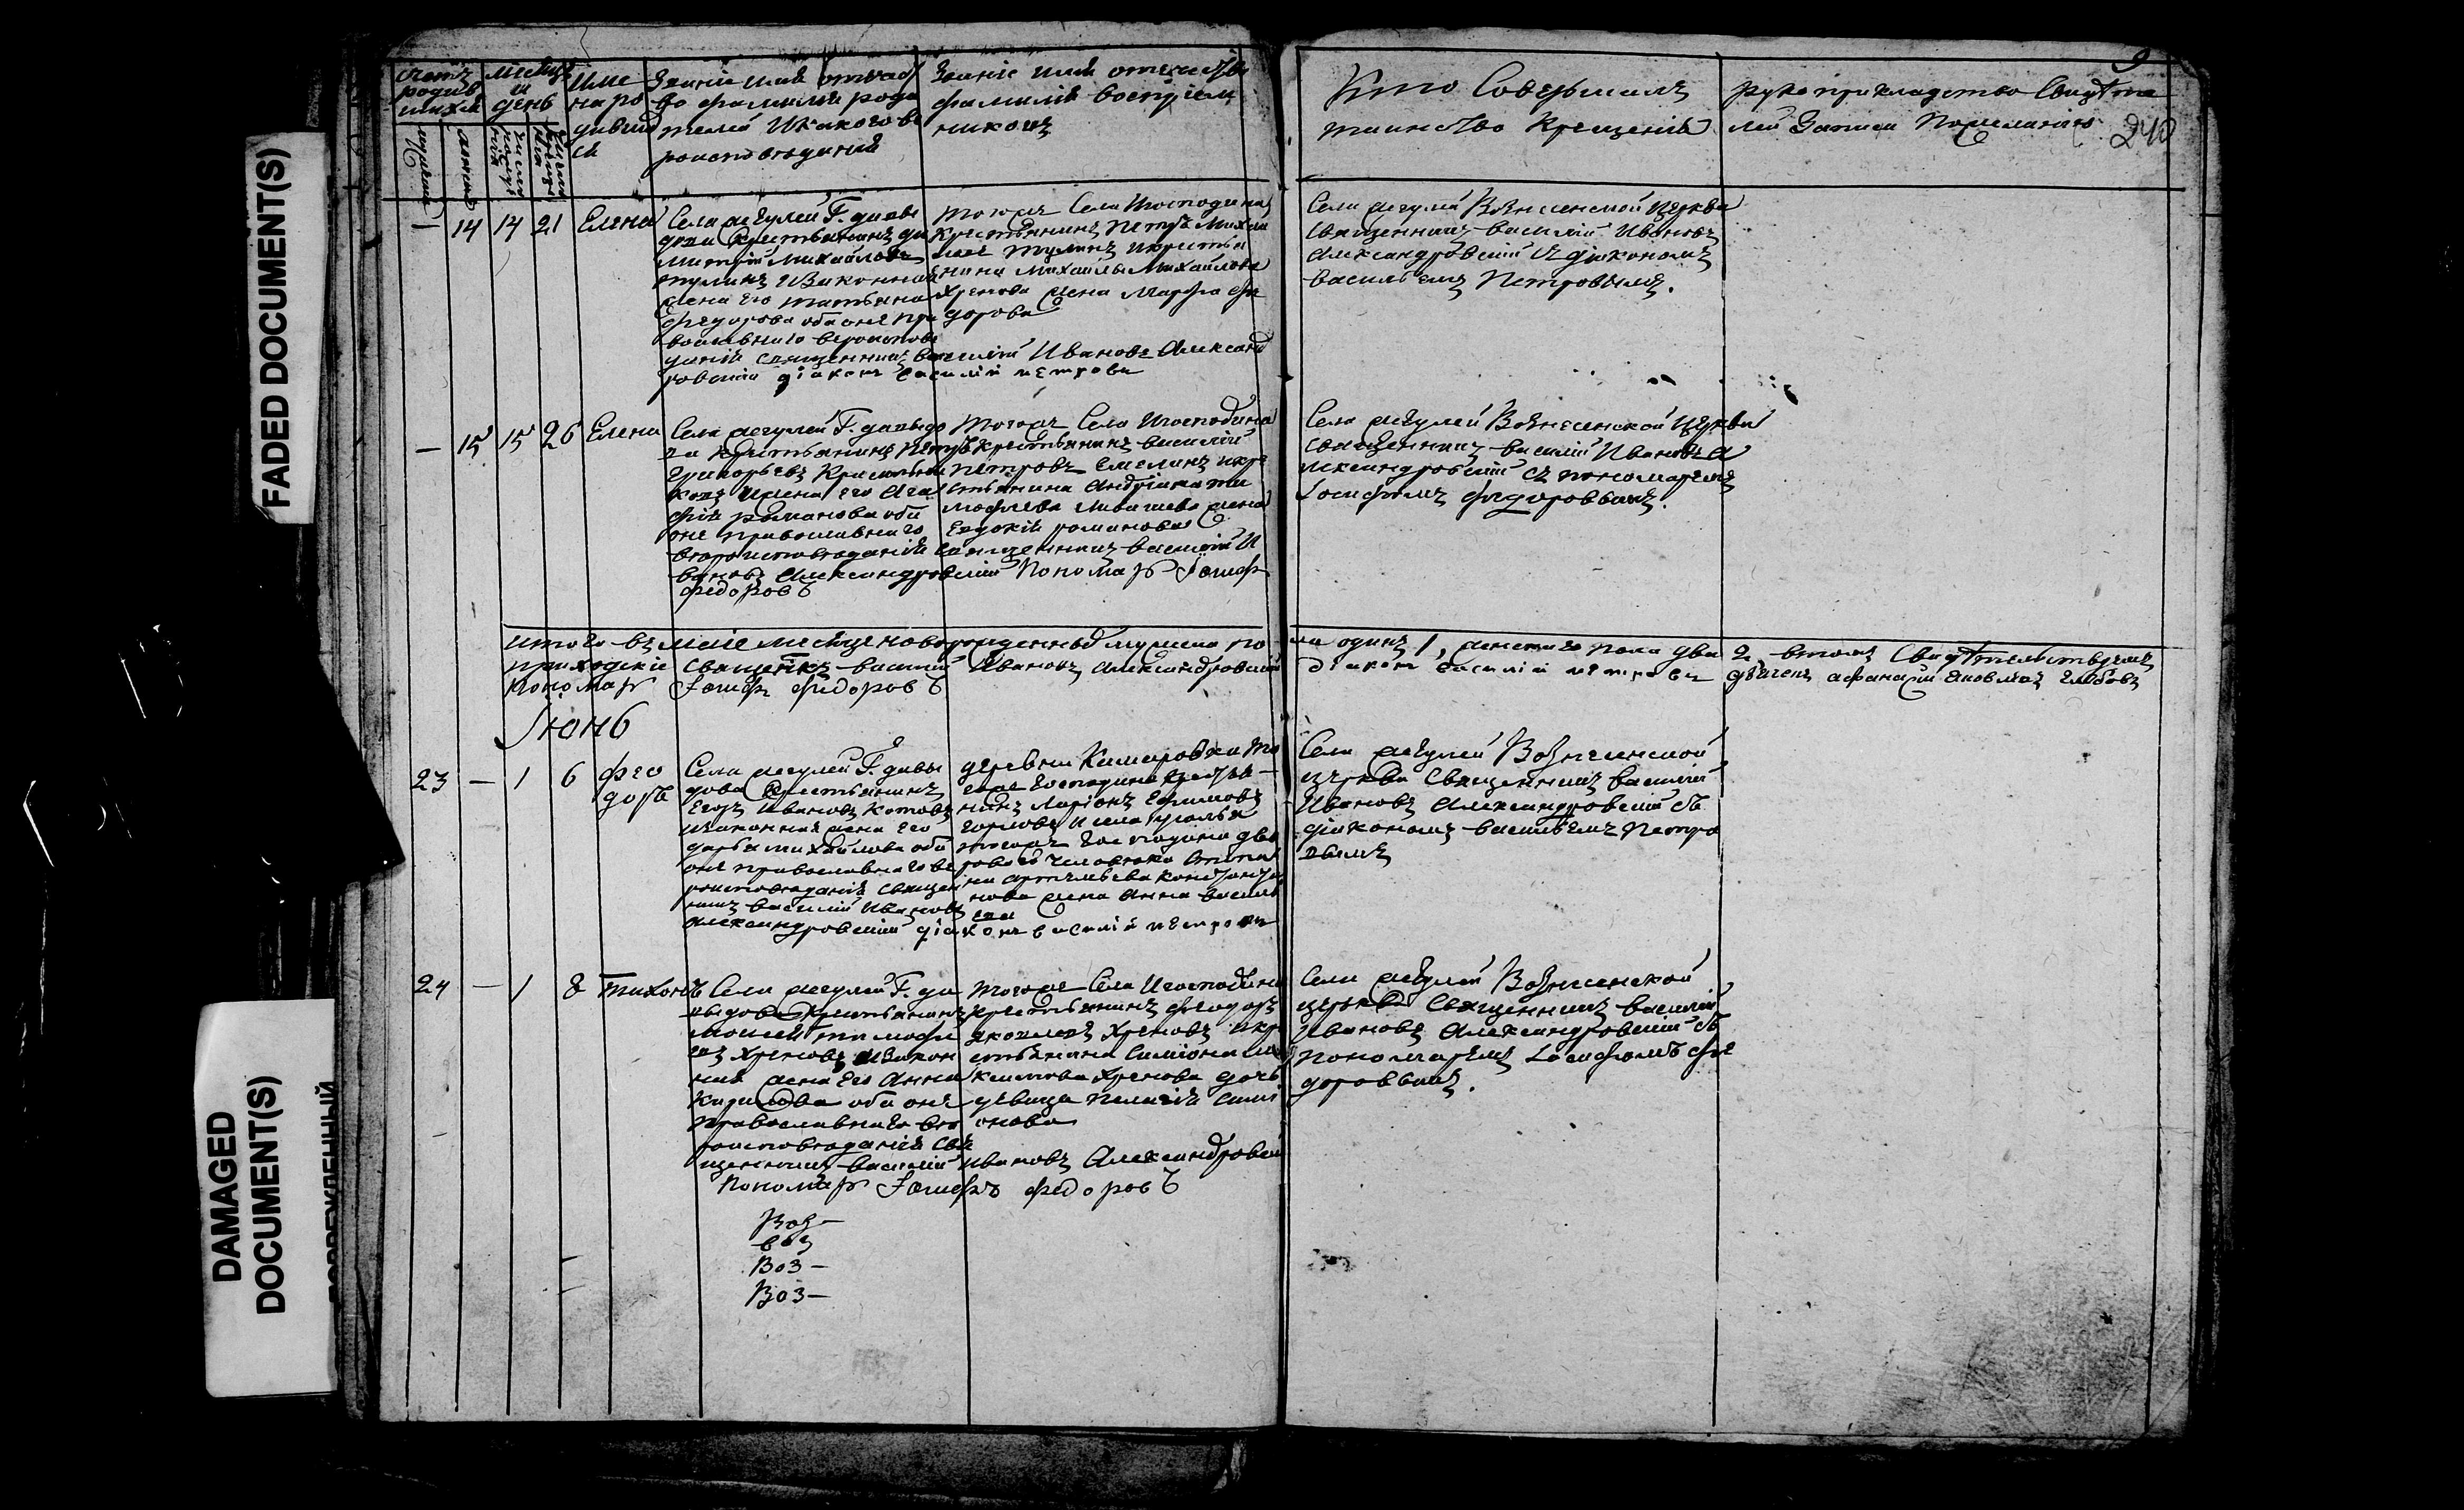 FADED DOCUMENT(S)
DAMAGED
DOCUMENT(S)
ПОВРЕЖДЕННЫЙ
Счетъ
родив
шихся
месяцъ
и
день
Име
на ро
дивши
ся
Звание имя отчест
во фамилия роди
телей и какого ве
роисповедания
Звание имя отечество
фамилия восприем
никовъ
Кто Совершалъ
таинство Крещения
рукоприкладство Свидете
лей Записи По желанию
9
240
— 14 14 21 Елена
Села Г. давы
дова Крестьянинъ ди
митрий Михайловъ
тулинъ и Законная
жена его татьяна
Феодорова оба они пра
вославнаго вероиспове
дания священникъ василий Ивановъ Александ
ровский диаконъ василий петровъ
тогожъ Села и господина
Крестьянинъ Петръ Михай
ловъ тулинъ и крестья
нина Михаилы Михайлова
Хренова жена Марфа Фе
дорова
Села Вознесенской Церкви
Священникъ василий Ивановъ
Александровский съ диакономъ
васильемъ Петровымъ.
— 15 15 26 Елена
Села Г. давыдо
ва Крестьянинъ Петръ
Григорьевъ
и жена его Ага
фия романова оба
они православнаго
вероисповедания священникъ василий И
вановъ Александровский Пономарь Иосиф
Федоровъ
тогожъ Села и господина
Крестьянинъ василий
Петровъ Емелинъ и кре
стьянина Андриана ти
мофеева жена
Евдокия романова
Села Вознесенской Церкви
священникъ василий Ивановъ А
лександровский съ пономаремъ
Иосифомъ Федоровымъ.
итого въ мае месяце новорожденныхъ мужеска по
ла одинъ 1, женскаго пола два 2, в томъ Свидетельствуемъ
приходские Священникъ василий Ивановъ Александровский
диаконъ василий петровъ дьячекъ афанасий Яковлевъ Глебовъ
Пономарь Иосифъ Федоровъ
Июнь
23 — 1 6 Фео
доръ
Села Г. давы
дова Крестьянинъ
Егоръ Ивановъ Котовъ
и законная жена его
дарья михайлова оба
они православнаго ве
роисповедания священ
никъ василий Ивановъ
Александровский диаконъ василий петровъ
деревни Комаровки то
гожъ господина крестья
нинъ Ларионъ Ефимовъ
Горловъ и села
тогожъ господина дво
роваго человека Степа
на артемьева
нова жена Анна василь
ева
Села Вознесенской
церкви Священникъ василий
Ивановъ Александровский съ
диакономъ васильемъ Петро
вымъ
24 — 1 8 Тихонъ
Села Г. да
выдова Крестьянинъ
Моисей тимофе
евъ Хреновъ и Закон
ная жена его Анна
Кирилова оба они
православнаго ве
роисповедания свя
щенникъ василий Ивановъ Александровский
Пономарь Иосифъ Федоровъ
тогожъ Села и господина
крестьянинъ Феодоръ
Яковлевъ Хреновъ и кр
естьянина Симиона Ма
ксимова Хренова дочь
девица Пелагия Сими
онова
Села Вознесенской
церкви Священникъ василий
Ивановъ Александровский съ
пономаремъ Иосифомъ Фе
доровымъ.
Воз—
воз
Воз—
Воз—